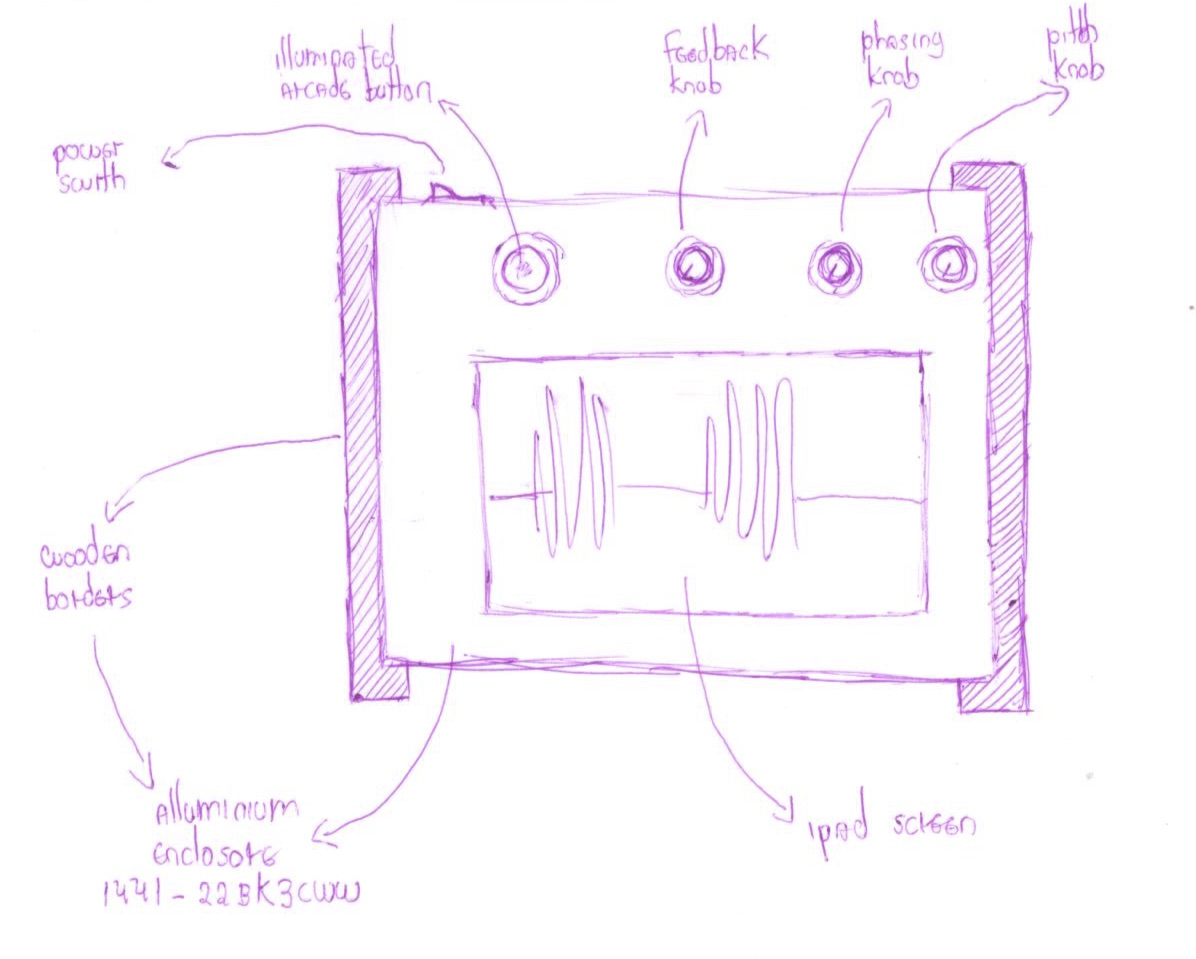 illuminated
ARCADE button
Feedback
knob
phasing
knob
pitch
knob
power
swith
wooden
borders
Alluminium
enclosore
1441-22BK3CWW
ipad screen